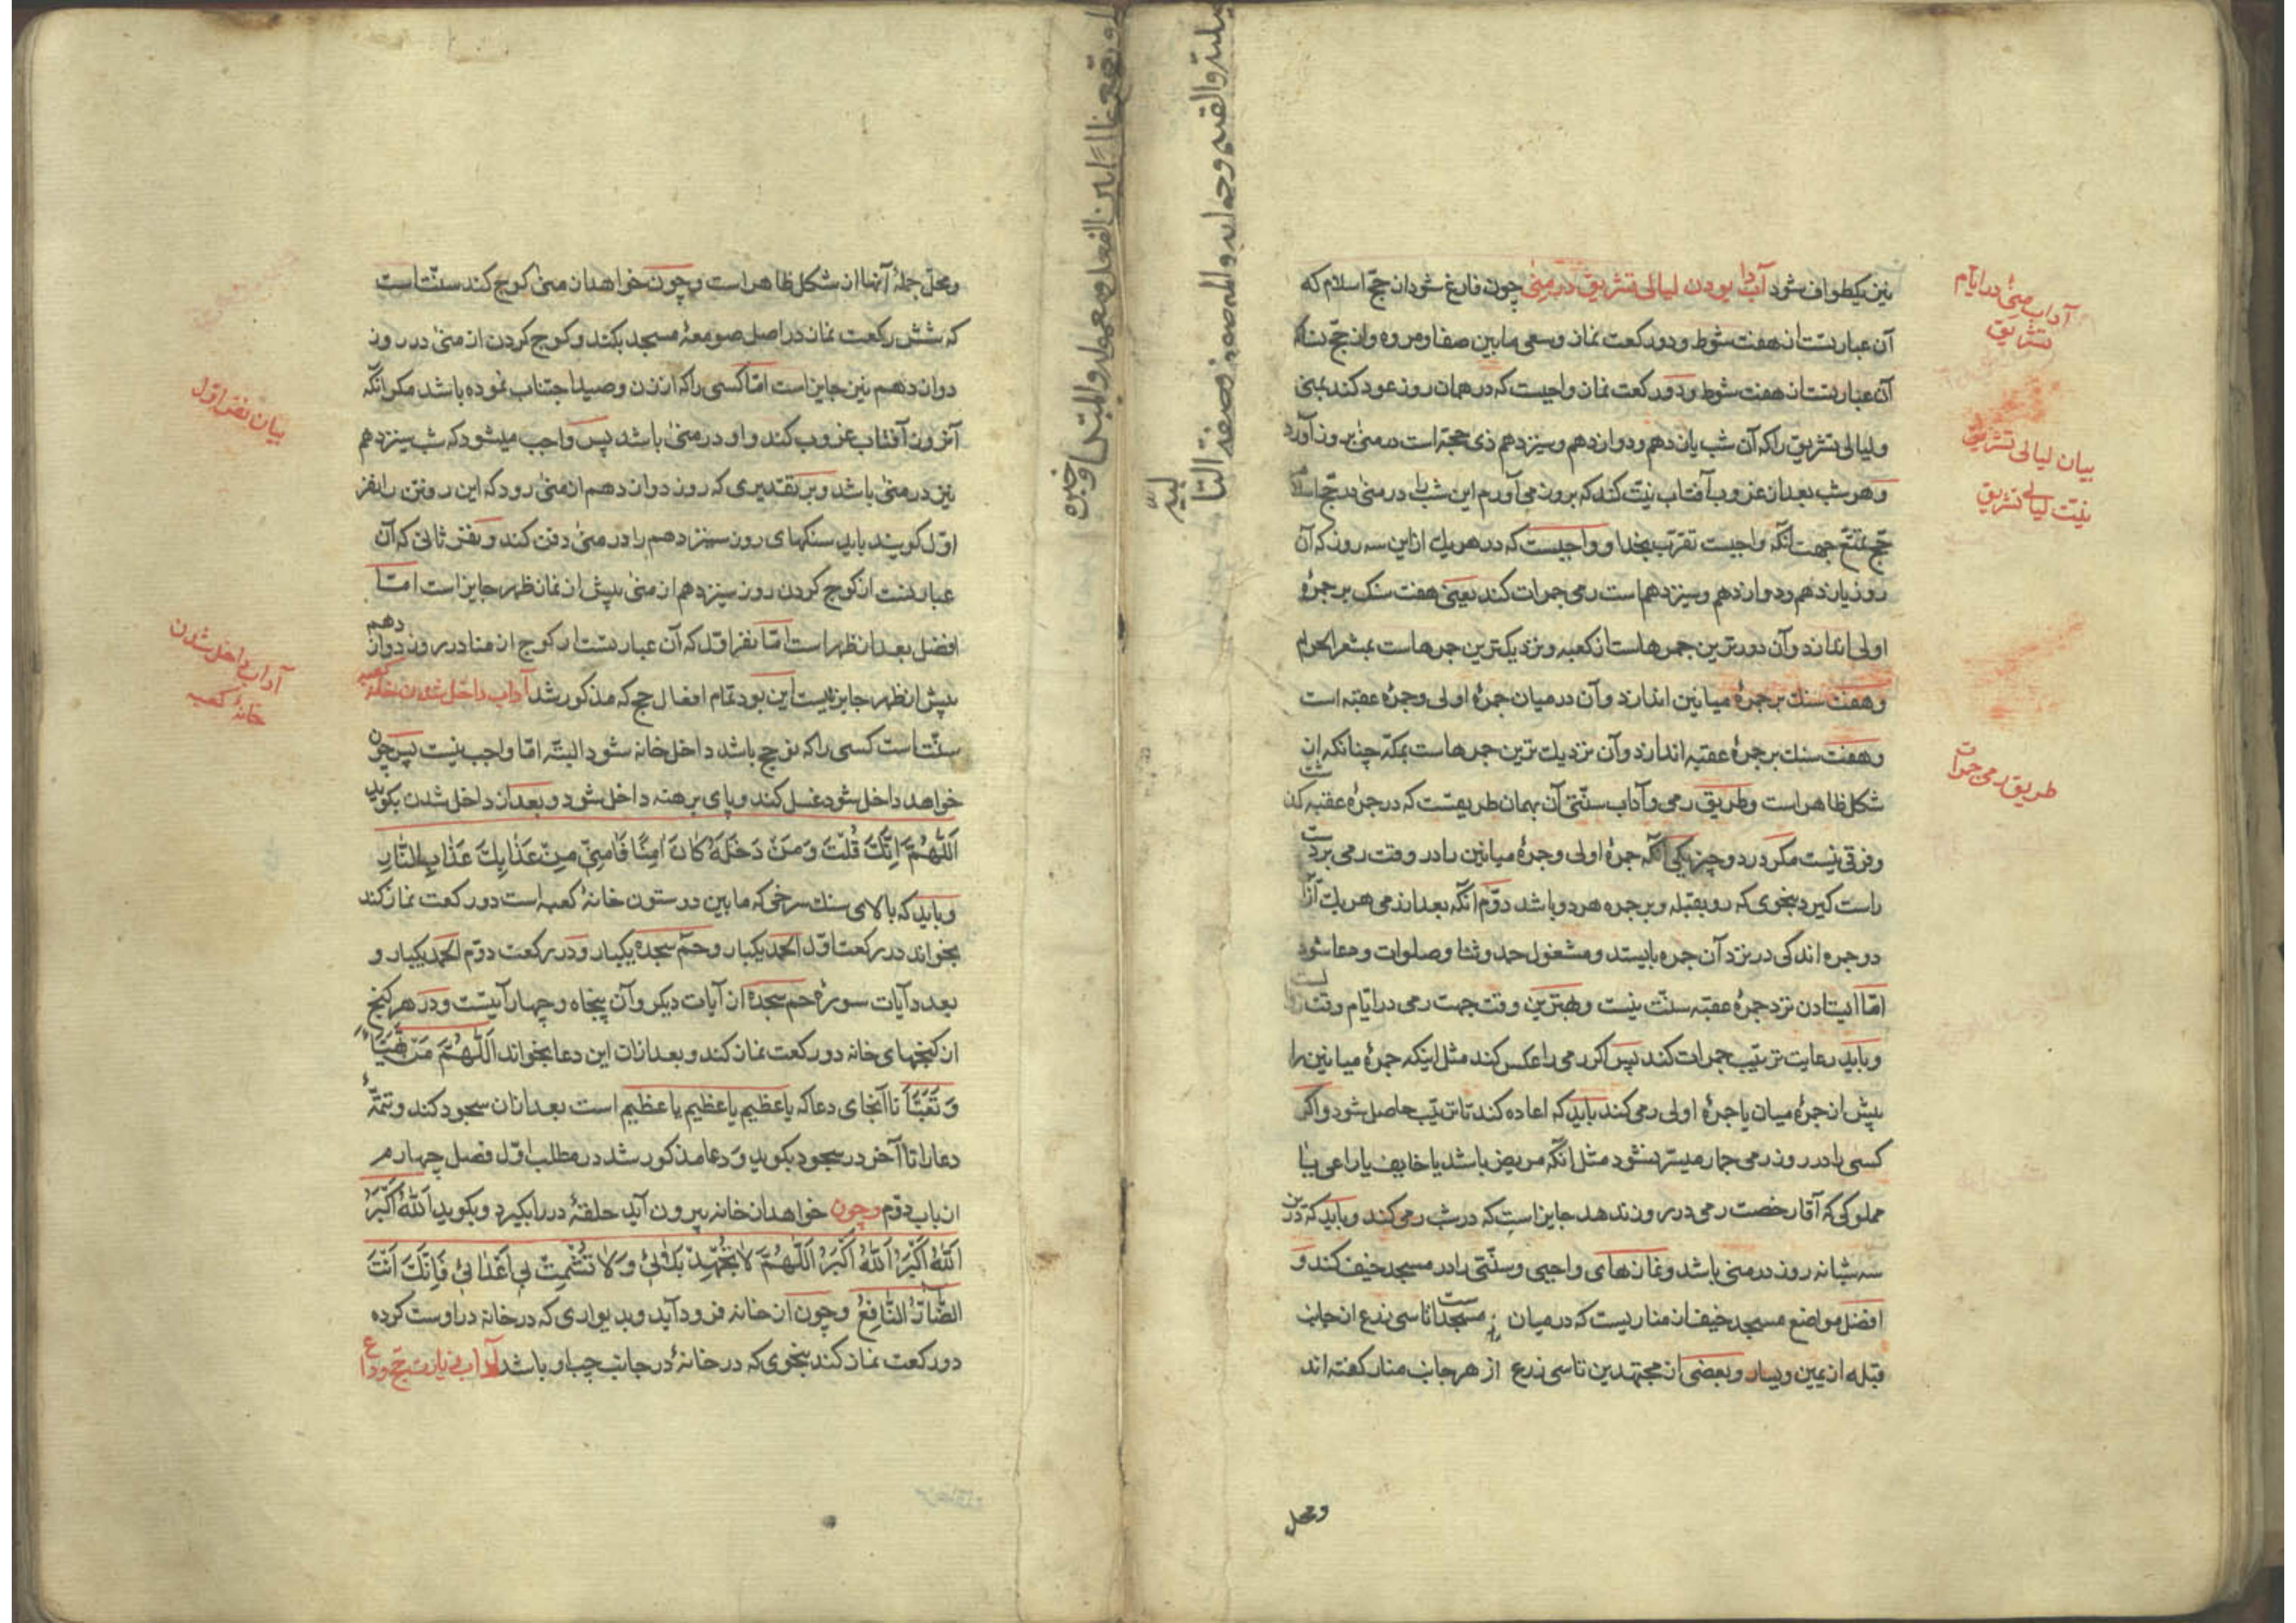 نیز یکطواف شود آداب بودن لیالی تشریق در منیٰ چون فارغ شود از حج اسلام که
آن عبارتست از هفت شوط و دو رکعت نماز و سعی ما بین صفا و مروه و از حج نساء که
آن عبارتست از هفت شوط و دو رکعت نماز واجبست که در همان روز عود کند بمنی
و لیالی تشریق را که آن شب یازدهم و دوازدهم و سیزدهم ذی حجّه است در منیٰ بروز آورد
و هر شب بعد از غروب آفتاب نیّت کند که بروز می آورم این شب را در منیٰ در حج اسلام
حج تمتّع جهت آنکه واجبست تقرّب بخدا و واجبست که در هر یک از این سه روز که آن
روز یازدهم و دوازدهم و سیزدهم است رمی جمرات کند یعنی هفت سنک بر جمرهٔ
اولی اندازد و آن دورترین جمرهاست از کعبه و نزدیکترین جمرهاست بمشعر الحرام
و هفت سنک بر جمرهٔ میانین اندازد و آن در میان جمرهٔ اولی و جمرهٔ عقبه است
و هفت سنک بر جمرهٔ عقبه اندازد و آن نزدیک ترین جمرهاست بمکّه چنانکه از
شکل ظاهر است و طریق رمی و آداب سنّتی آن بهمان طریقست که در جمرهٔ عقبه کذشت
و فرقی نیست مکر در دو چیز یکی آنکه جمرهٔ اولی و جمرهٔ میانین را در وقت رمی بر دست
راست کیرد بنحوی که رو بقبله و بر جمره هر دو باشد دوّم آنکه بعد از رمی هر یک از آن
دو جمره اندکی در نزد آن جمره بایستد و مشغول حمد و ثنا و صلوات و دعا شود
امّا ایستادن نزد جمرهٔ عقبه سنّت نیست و بهترین وقت جهت رمی در ایّام وقت
و باید رعایت ترتیب جمرات کند پس اکر رمی را عکس کند مثل اینکه جمرهٔ میانین را
پیش از جمرهٔ میان یا جمرهٔ اولی رمی کند باید که اعاده کند تا ترتیب حاصل شود و اکر
کسی را در روز رمی جمار میسّر نشود مثل آنکه مریض باشد یا خایف یا راعی یا
مملوکی که آقا رخصت رمی در روز ندهد جایز است که در شب رمی کند و باید که در این
سه شبانه روز در منی باشد و نمازهای واجبی و سنّتی را در مسجد خیف کند و
افضل مواضع مسجد خیف از مناریست که در میان مسجدست تا سی ذرع از جانب
قبله از یمین و یسار و بعضی از مجتهدین تا سی ذرع از هر جانب منار کفته اند
و محل
آداب منیٰ در ایّام
تشریق
بیان لیالی تشریق
نیّت لیالی تشریق
طریق رمی جمرات
و محل جملهٔ آنها از شکل ظاهر است و چون خواهد از منیٰ کوچ کند سنّت است
که شش رکعت نماز در اصل صومعهٔ مسجد بکند و کوچ کردن از منیٰ در روز
دوازدهم نیز جایز است امّا کسی را که از زن و صید اجتناب نموده باشد مکر آنکه
آنروز آفتاب غروب کند و او در منیٰ باشد پس واجب میشود که شب سیزدهم
نیز در منیٰ باشد و بر تقدیری که روز دوازدهم از منیٰ رود که این رفتن را نفر
اوّل کویند باید سنکهای روز سیزدهم را در منیٰ دفن کند و نفر ثانی که آن
عبارتست از کوچ کردن روز سیزدهم از منیٰ پیش از نماز ظهر جایز است امّا
افضل بعد از ظهر است امّا نفر اوّل که آن عبارتست از کوچ از منا در روز دوازدهم
پیش از ظهر جایز نیست این بود تمام افعال حج که مذکور شد آداب داخل شدن خانهٔ کعبه
سنّت است کسی را که بحج باشد داخل خانه شود البتّه امّا واجب نیست پس چون
خواهد داخل شود غسل کند و پای برهنه داخل شود و بعد از داخل شدن بکوید
اَللّٰهُمَّ اِنَّكَ قُلْتَ وَ مَنْ دَخَلَهُ كَانَ اٰمِنًا فَاٰمِنِّي مِنْ عَذَابِكَ عَذَابِ النَّارِ
و باید که بالای سنک سرخی که ما بین دو ستون خانهٔ کعبه است دو رکعت نماز کند
بخواند در رکعت اوّل الحمد یکبار و حم سجده یکبار و در رکعت دوّم الحمد یکبار و
بعدد آیات سورهٔ حم سجده از آیات دیکر و آن پنجاه و چهار آیتست و در هر کنج
از کنجهای خانه دو رکعت نماز کند و بعد از آن این دعا بخواند اَللّٰهُمَّ مَنْ تَهَيَّأَ
وَ تَعَبَّأَ تا آنجای دعا که یا عظیم یا عظیم یا عظیم است بعد از آن سجود کند و تتمّهٔ
دعا را تا آخر در سجود بکوید و دعا مذکور شد در مطلب اوّل فصل چهارم
از باب دوّم و چون خواهد از خانه بیرون آید حلقهٔ در را بکیرد و بکوید اَللّٰهُ اَكْبَرُ
اَللّٰهُ اَكْبَرُ اَللّٰهُ اَكْبَرُ اَللّٰهُمَّ لَا تُجْهِدْ بَلَائِي وَ لَا تُشْمِتْ بِي اَعْدَائِي فَاِنَّكَ اَنْتَ
الضَّارُّ النَّافِعُ و چون از خانه فرود آید و بدیواری که در خانه در اوست کرده
دو رکعت نماز کند بنحوی که در خانهٔ در جانب چپ او باشد آداب زیارت حج وداع
بیان نفر اوّل
آداب داخل شدن
خانهٔ کعبه